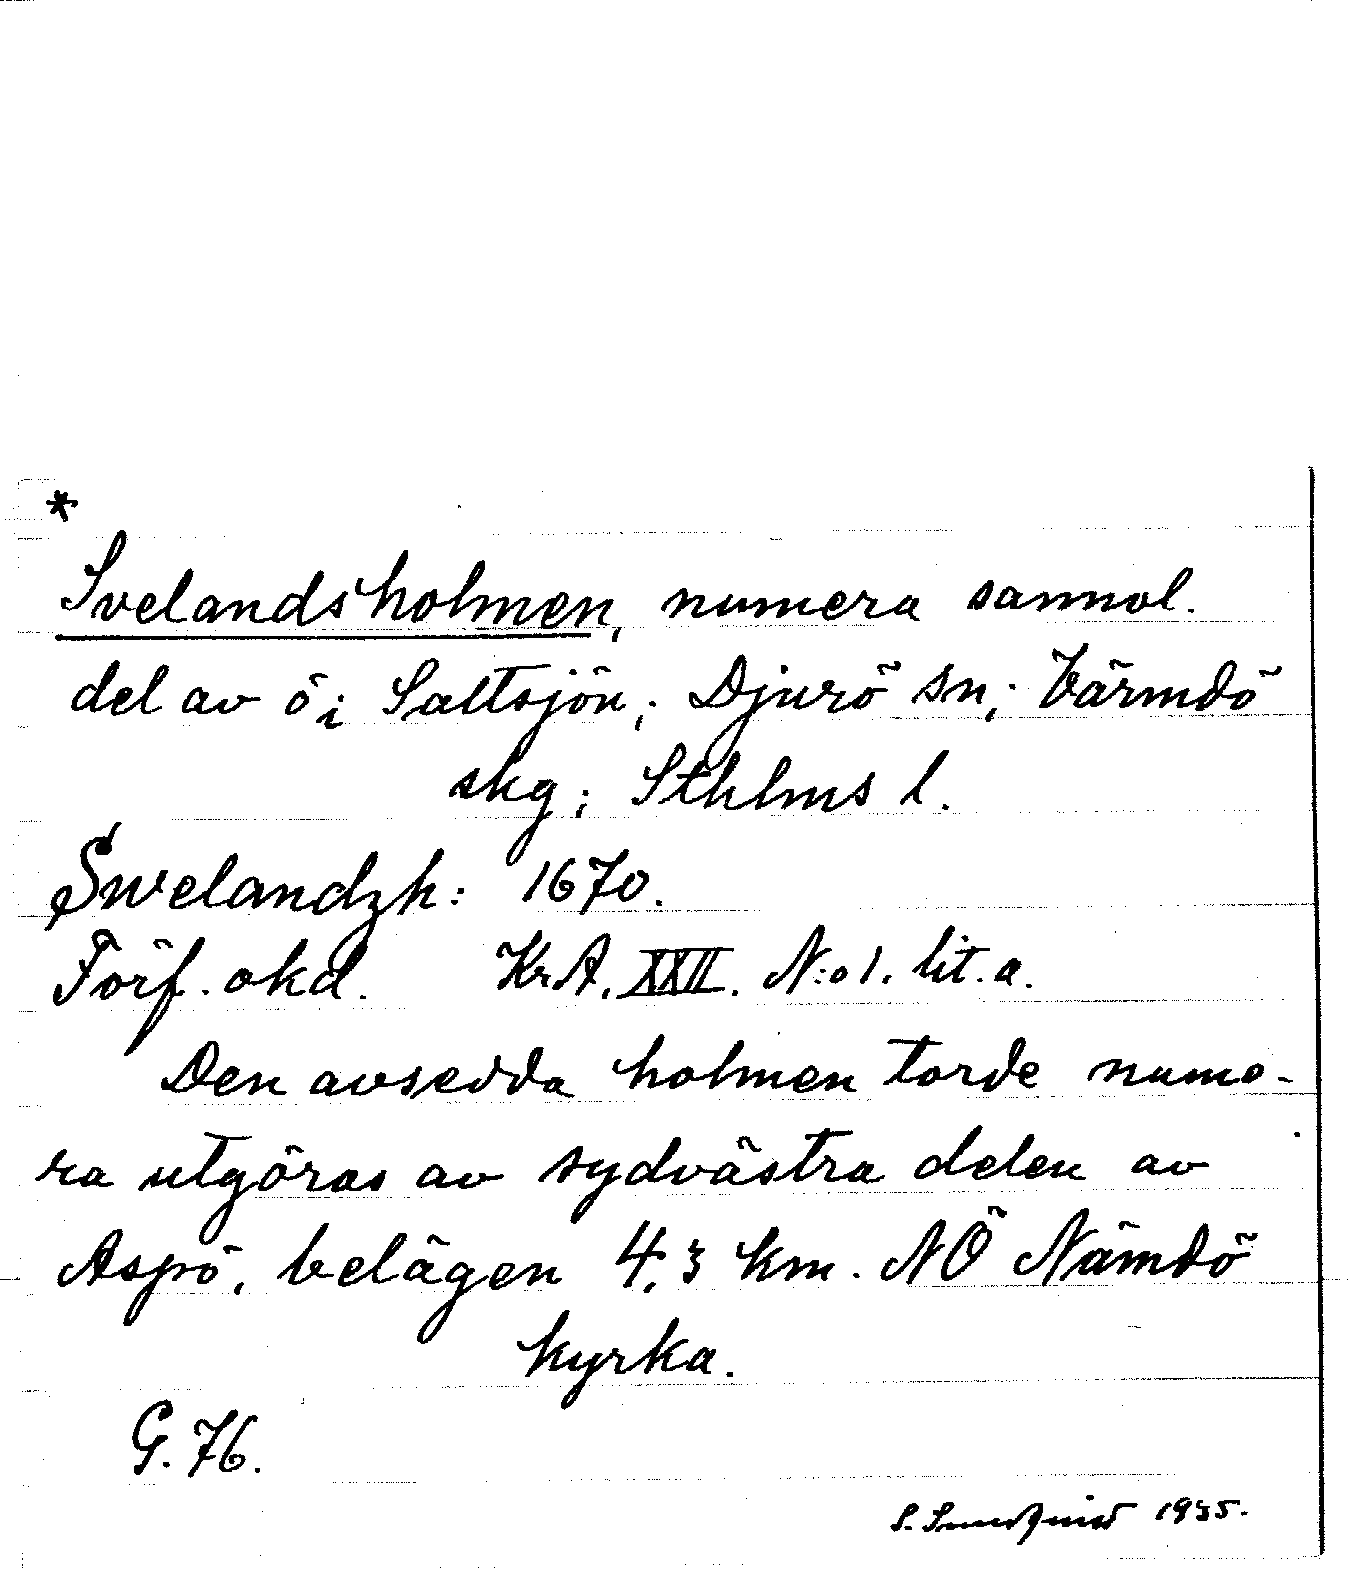 *
Svelandsholmen, numera sannol.
del av ö i Saltsjön; Djurö sn; Värmdö
skg; Sthlms l.
Swelandzh: 1670.
Förf. okd. KrA. XXII. N:o 1. lit. a.
Den avsedda holmen torde nume-
ra utgöras av sydvästra delen av
Aspö, belägen 4,3 km. NÖ Nämdö
kyrka.
G. 76.
S. Sundquist 1935.